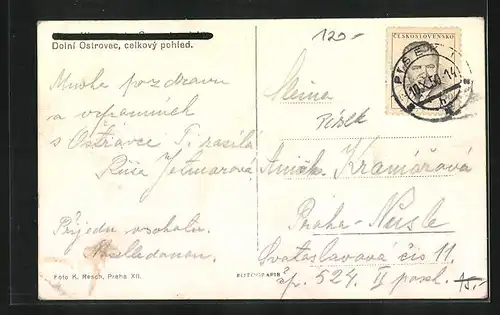 Dolní Ostrovec, celkový pohled.
120.-
ČESKOSLOVENSKO
PÍSEK
10.X.50-14
Mnoho pozdravů
a vzpomínek
z Ostrovce Ti zasílá
Růža Jetmarová
Přijedu v sobotu.
Nashledanou.
Foto K. Resch, Praha XII.
Slečna
Písek
Kramářová
Praha - Nusle
Svatoslavova čís 11.
čp. 524. II posch.
15.-